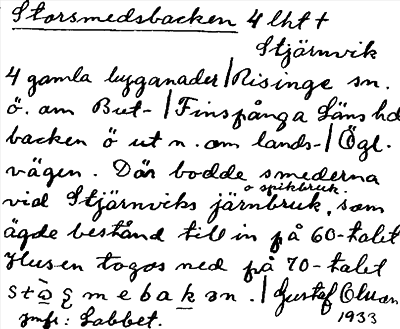 Storsmedsbacken 4 lht +
Stjärnvik
4 gamla byggnader / Risinge sn.
ö. om But- / Finspånga Läns hd
backen ö ut n. om lands- / Ögl.
vägen. Där bodde smederna
o spikbruk.
vid Stjärnviks järnbruk, som
ägde bestånd till in på 60-talet
Husen togos ned på 70-talet
/ Gustaf Olsson
jmf: Labbet. 1933